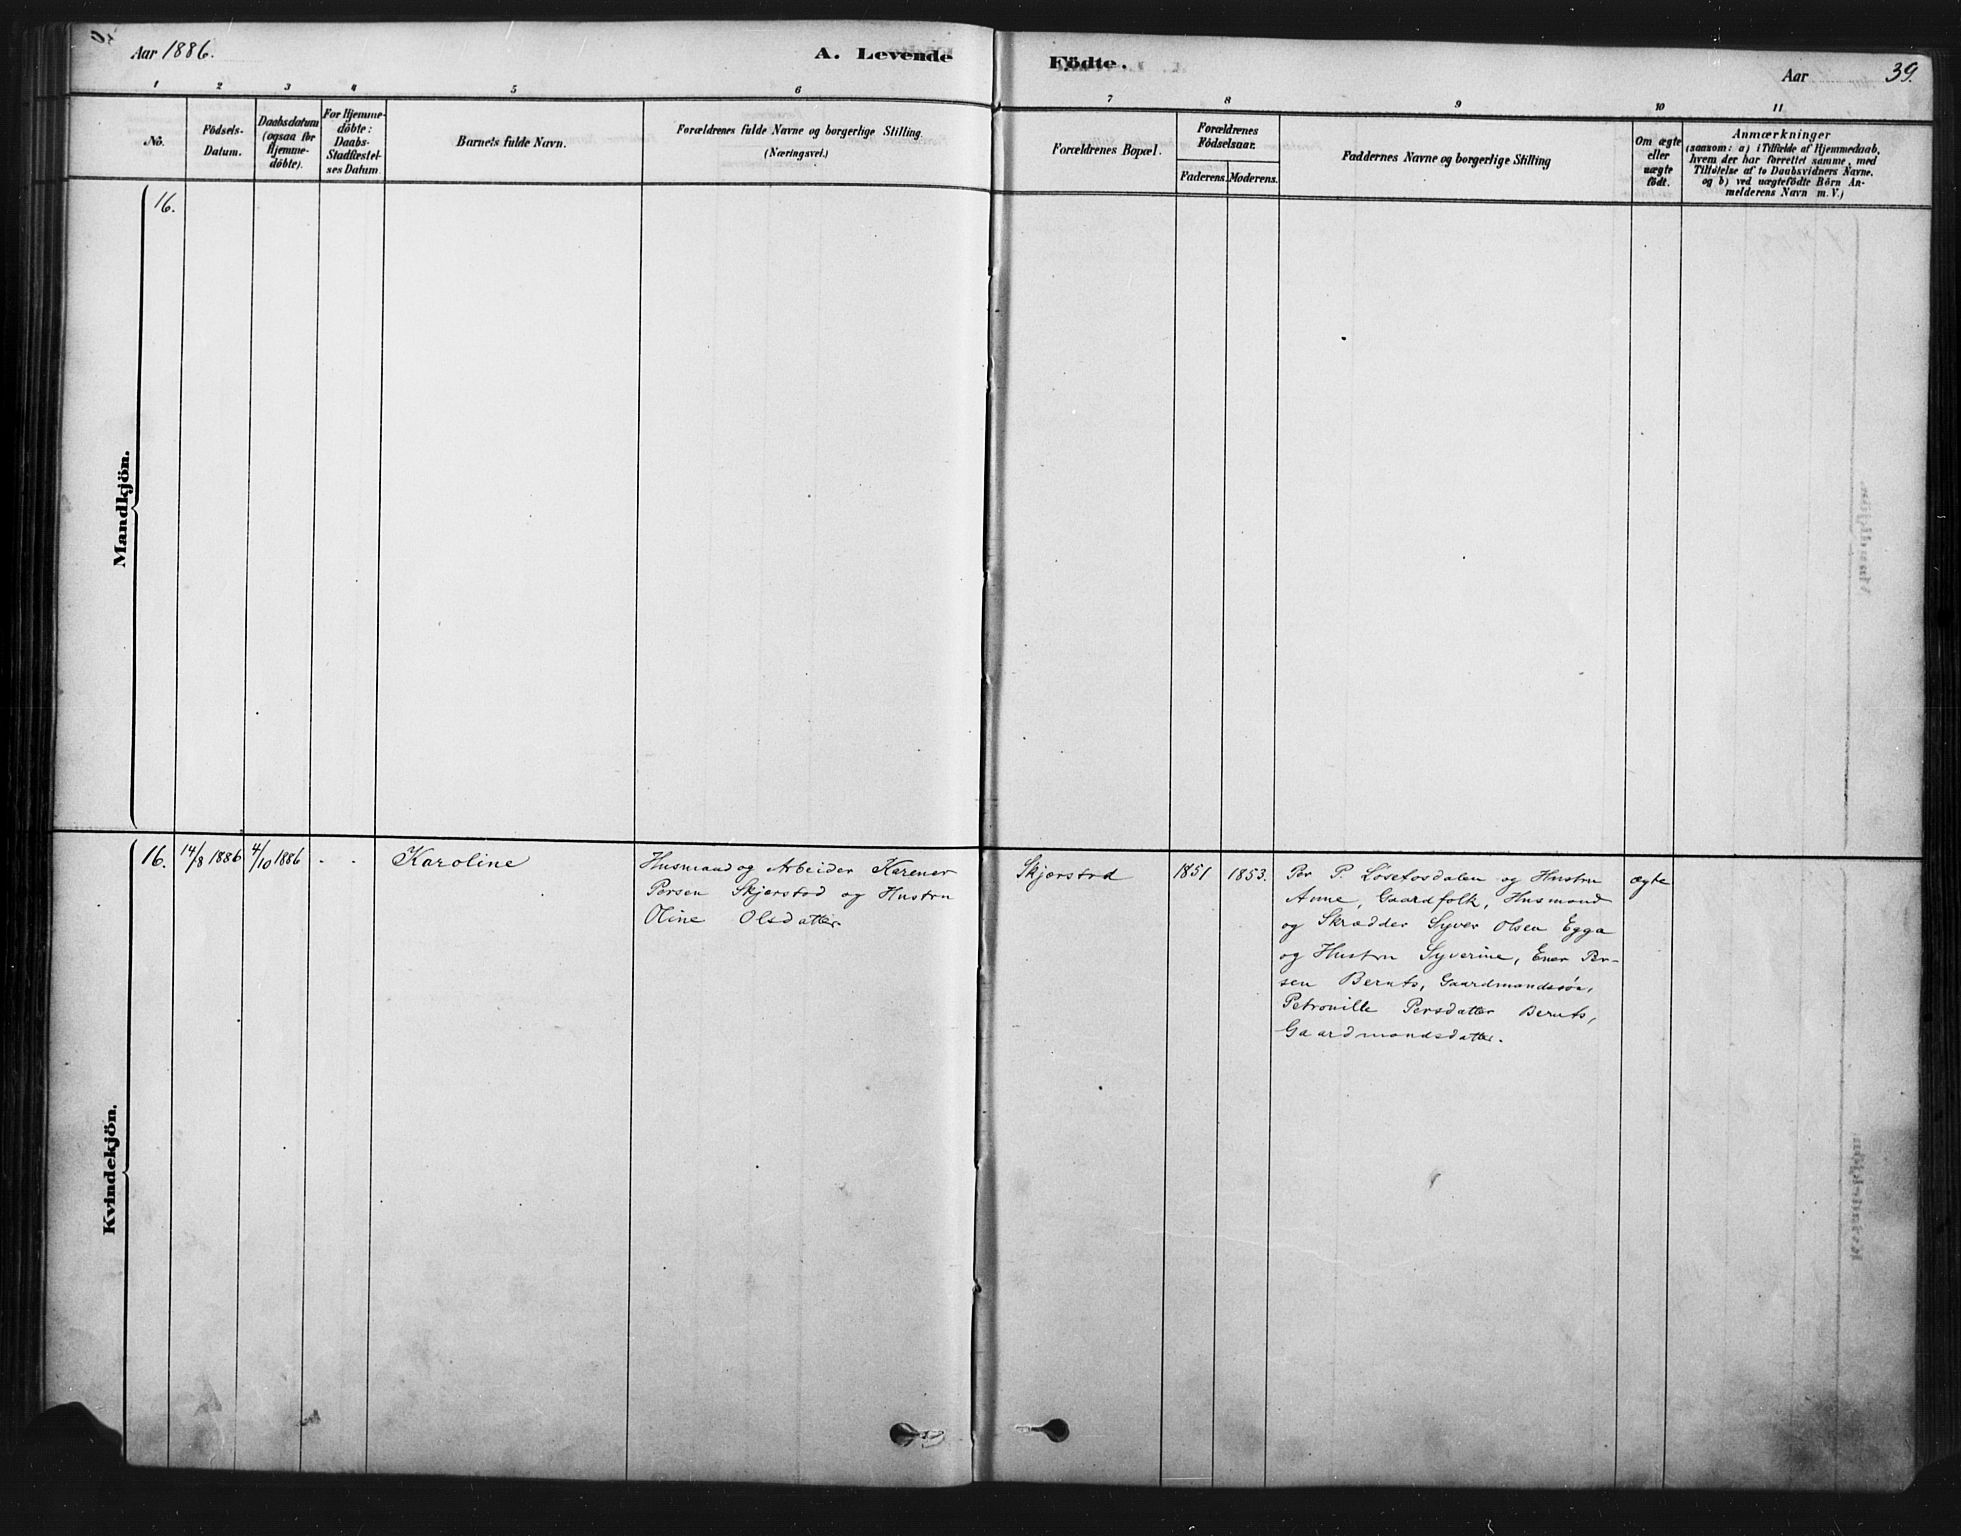 Aar 1886.
A. Levende Födte.
Aar
39.
1 2 3 4 5 6 7 8 9 10 11
No.
Födsels-
Datum.
Daabsdatum
(ogsaa for
Hjemme-
döbte).
For Hjemme-
döbte:
Daabs-
Stadfæstel-
ses Datum.
Barnets fulde Navn.
Forældrenes fulde Navne og borgerlige Stilling.
(Næringsvei.)
Forældrenes Bopæl.
Forældrenes
Födselsaar.
Faderens. Moderens.
Faddernes Navne og borgerlige Stilling
Om ægte
eller
uægte
födt.
Anmærkninger
(saasom: a) i Tilfælde af Hjemmedaab,
hvem der har forrettet samme, med
Tilföielse af to Daabsvidners Navne,
og b) ved uægtefödte Börn An-
melderens Navn m.V.)
Mandkjön.
16.
Kvindekjön.
16.
14/8 1886
4/10 1886
- -
Karoline
Husmand og Arbeider Karener
Persen Skjerstad og Hustru
Oline Olsdatter
Skjerstad
1851
1853.
Per P. Losetosdalen og Hustru
Anne, Gaardfolk, Husmand
og Skrædder Syver Olsen Egga
og Hustru Syverine, Ener Per-
sen Bernts, Gaardmandssön,
Petronille Persdatter Bernts,
Gaardmandsdatter.
ægte